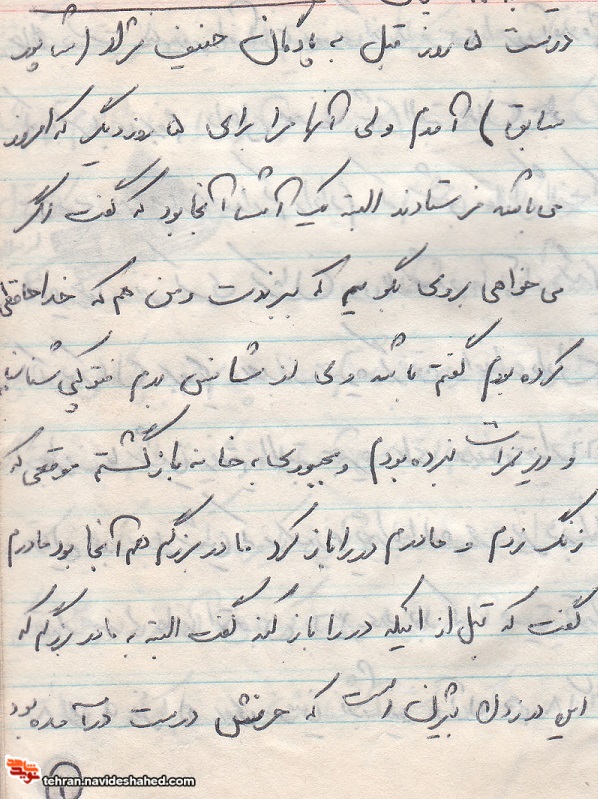 درست ۵ روز قبل به پادگان حنیف نژاد (شاپور
سابق) آمدم ولی آنها مرا برای ۵ روز دیگر که امروز
می باشد فرستادند البته یک آشنا آنجا بود که گفت اگر
می خواهی بروی بگویم که ببرندت و من هم که خداحافظی
کرده بودم گفتم باشد ولی از شانس بدم فتوکپی شناسنامه
و ریز نمرات نبرده بودم و مجبوری به خانه بازگشتم موقعی که
زنگ زدم و مادرم در را باز کرد مادر بزرگم هم آنجا بود مادرم
گفت که قبل از اینکه در را باز کند گفت البته به مادر بزرگم که
این در زدن بیژن است که حرفش درست درآمده بود
۱
نوید شاهد
tehran.navideshahed.com